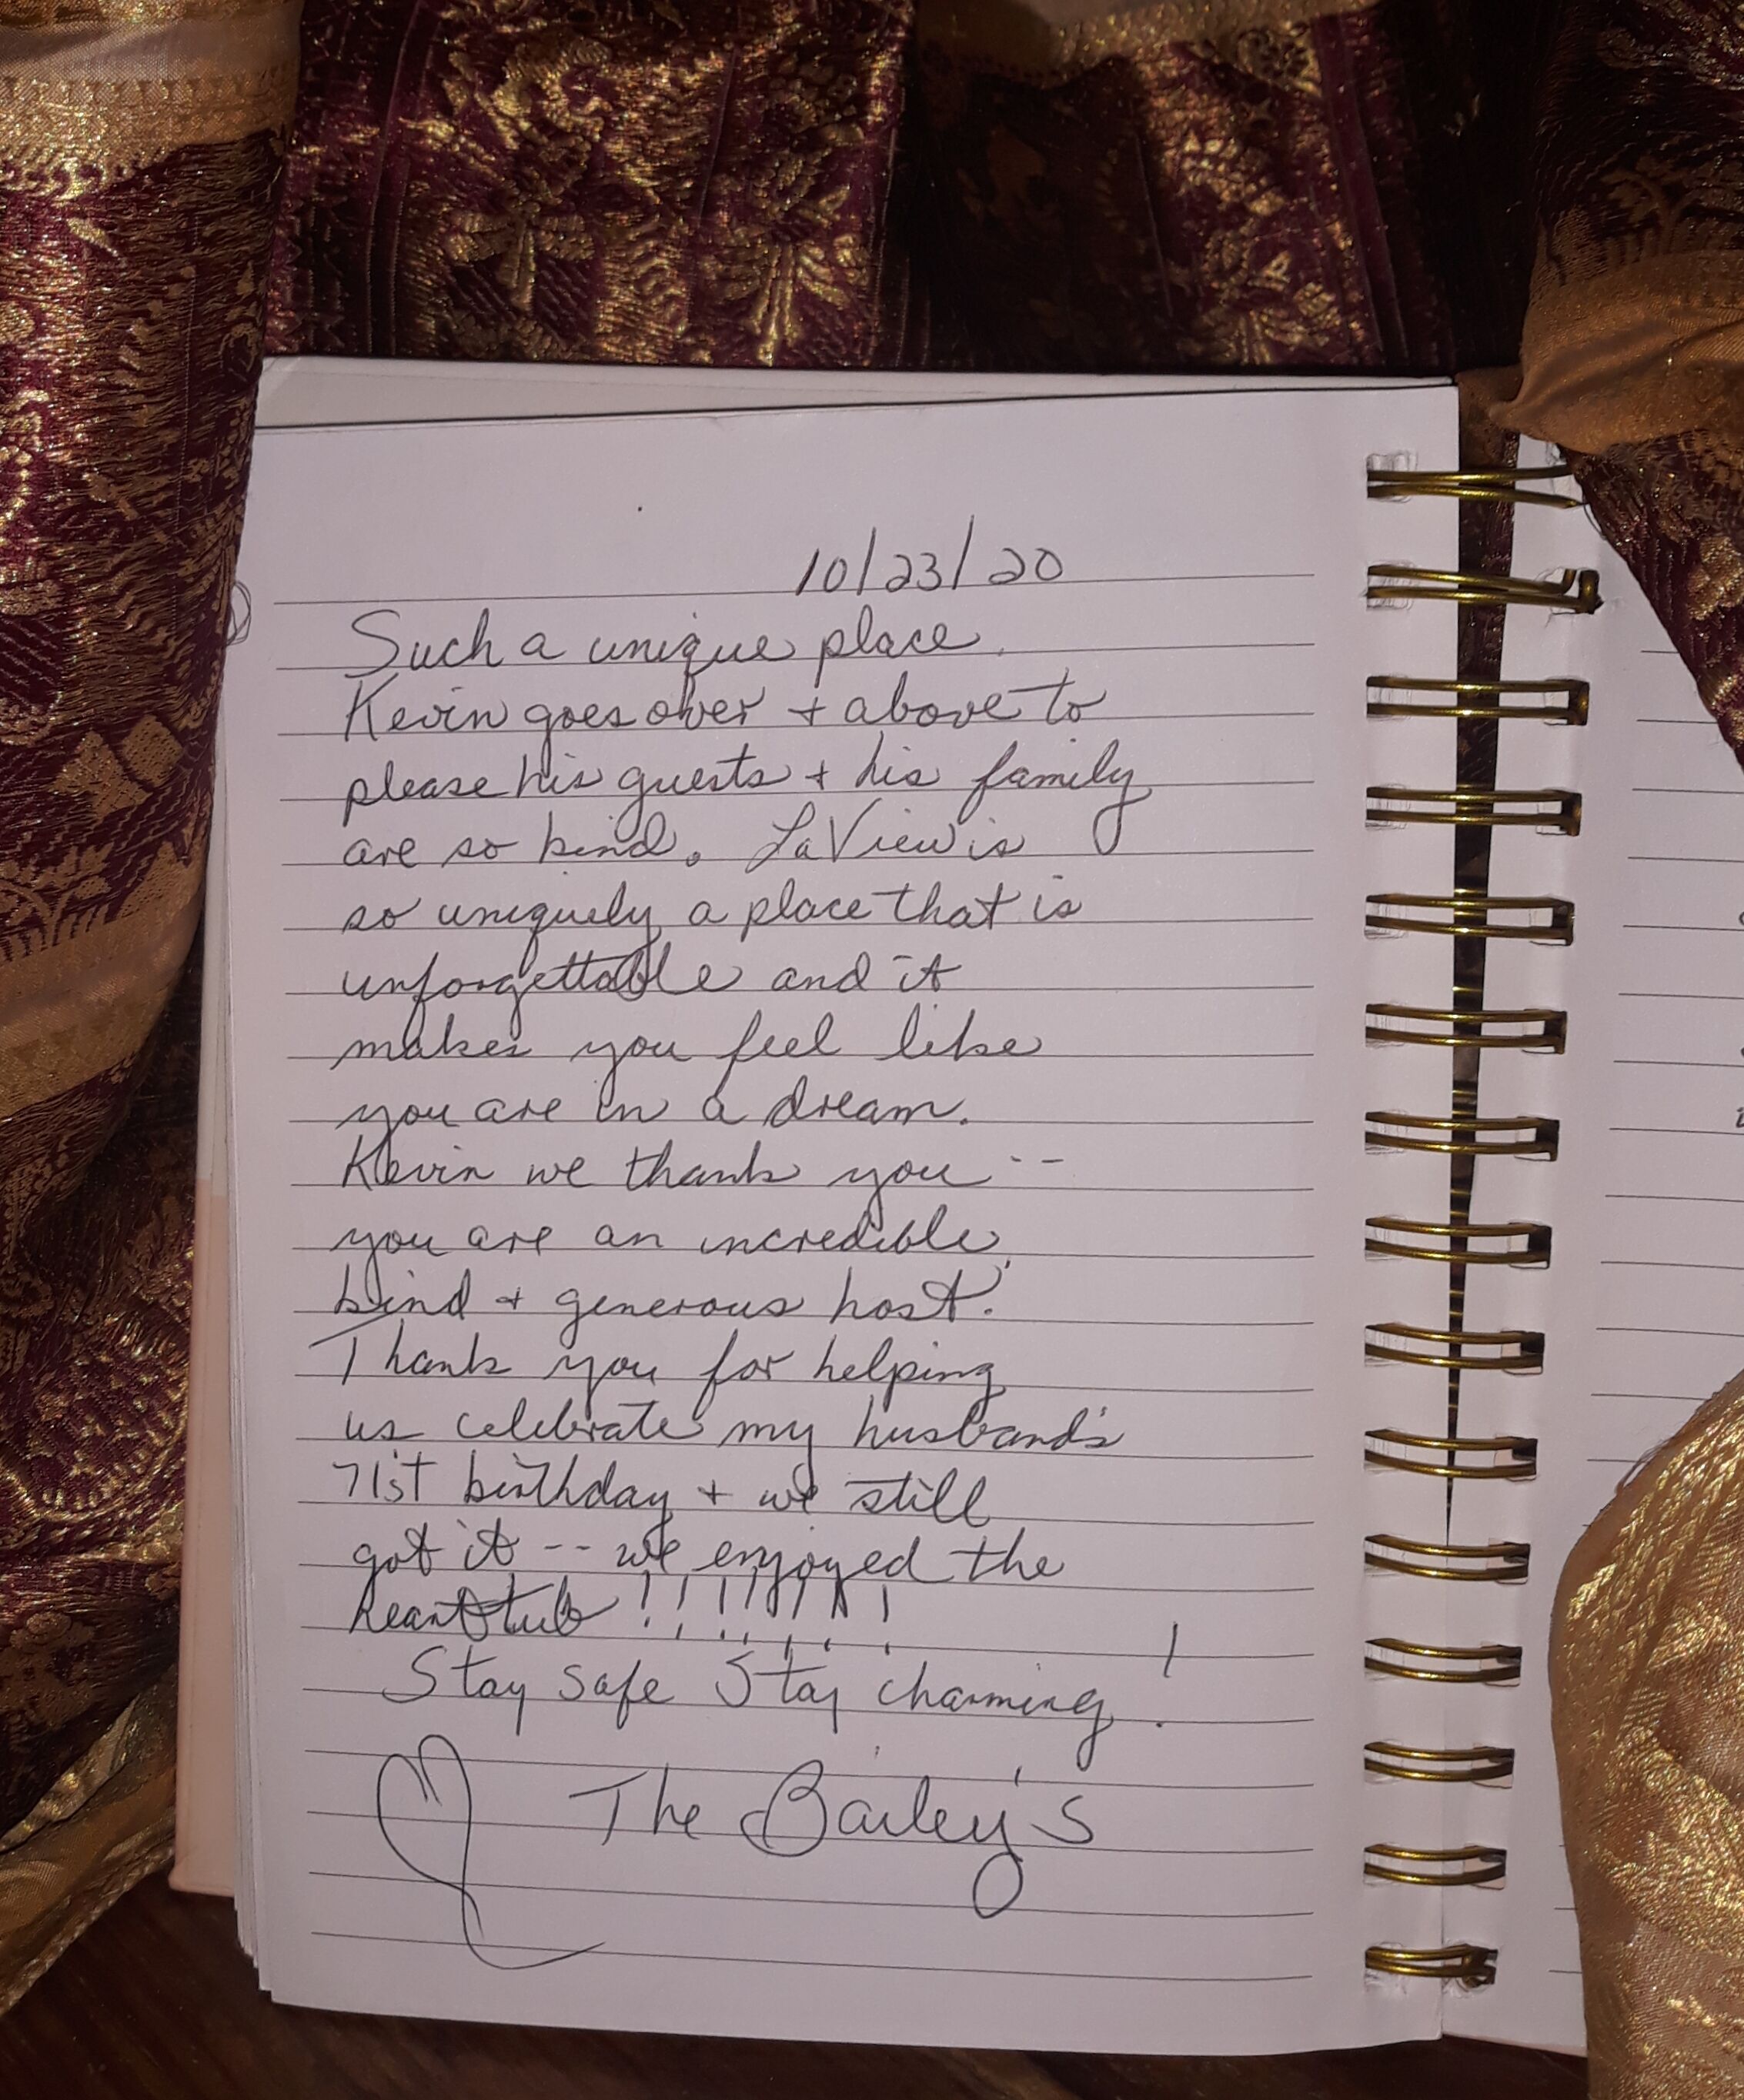 10/23/20
Such a unique place.
Kevin goes over + above to
please his guests + his family
are so kind. La View is
so uniquely a place that is
unforgettable and it
makes you feel like
you are in a dream.
Kevin we thank you --
you are an incredible,
kind + generous host.
Thank you for helping
us celebrate my husband's
71st birthday + we still
got it -- we enjoyed the
heart tub !!!!!!!!
Stay safe Stay charming!
The Bailey's